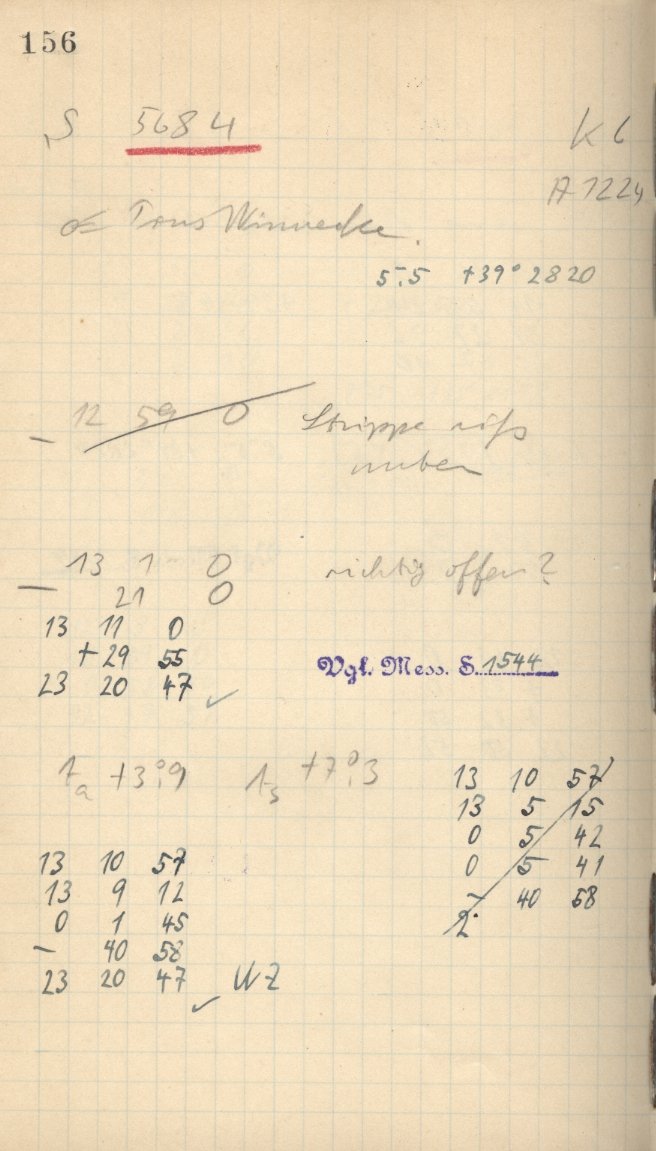 156
S 5684
K 6
A 1224
Trans Winnecke.
5.5 +39° 2820
— 12 59 0 Strippe riß
13 1 0 richtig offen?
— 21 0
13 11 0
+29 55
23 20 47 ✓
Vgl. Mess. S. 1544
ta +3°.9 ts +7°.3
13 10 57
13 5 15
0 5 42
0 5 41
— 40 58
2
13 10 57
13 9 12
0 1 45
— 40 58
23 20 47 ✓ WZ